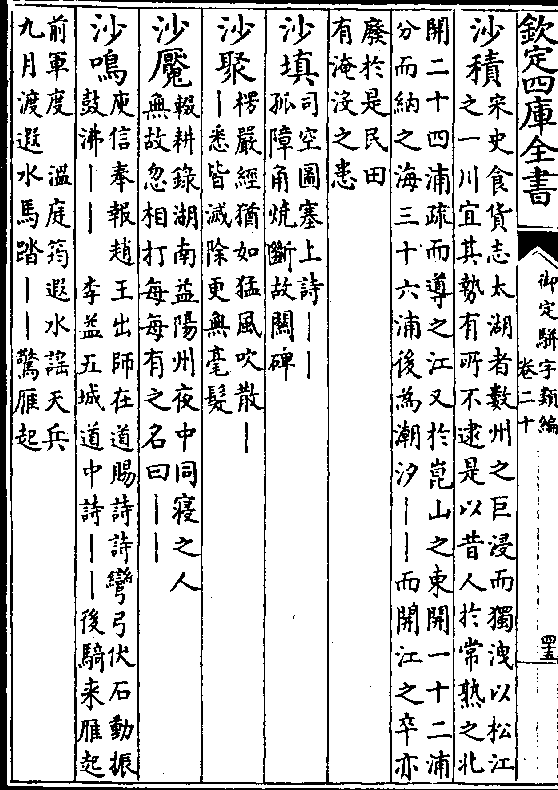 欽定四庫全書
御定騈字類編
卷二十
四五
沙積
宋史食貨志太湖者數州之巨浸而獨洩以松江
之一川宜其勢有所不逮是以昔人於常熟之北
開二十四浦疏而導之江又於崑山之東開一十二浦
分而納之海三十六浦後為潮汐——而開江之卒亦
廢於是民田
有淹沒之患
沙填
司空圖塞上詩——
孤障角燒斷故關碑
沙聚
楞嚴經猶如猛風吹散—
—悉皆滅除更無毫髮
沙魘
輟耕錄湖南益陽州夜中同寢之人
無故忽相打每每有之名曰——
沙鳴
庾信奉報趙王出師在道賜詩詩彎弓伏石動振
鼓沸—— 李益五城道中詩——後騎来雁起
前軍度 溫庭筠遐水謠天兵
九月渡遐水馬踏——驚雁起